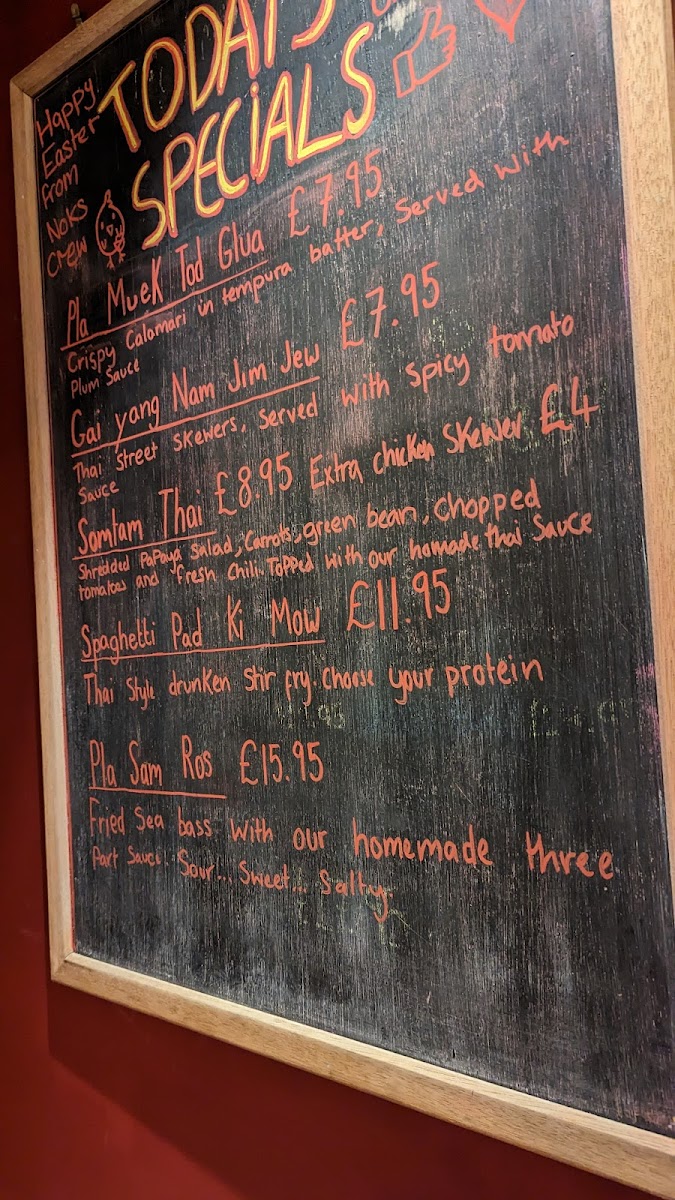 TODAYS
SPECIALS
Happy
Easter
From
Noks
Crew
Pla Muek Tod Glua £7.95
Crispy Calamari in tempura batter, Served with
Plum Sauce
Gai yang Nam Jim Jew £7.95
Thai Street Skewers, Served with spicy tomato
Sauce
Somtam Thai £8.95 Extra chicken Skewer £4
Shredded Papaya Salad, Carrots, green bean, chopped
tomatoes and fresh chili. Topped with our homade thai Sauce
Spaghetti Pad Ki Mow £11.95
Thai Style drunken Stir fry. Choose your protein
Pla Sam Ros £15.95
Fried Sea bass with our homemade three
Part Sauce. Sour... Sweet... Salty.